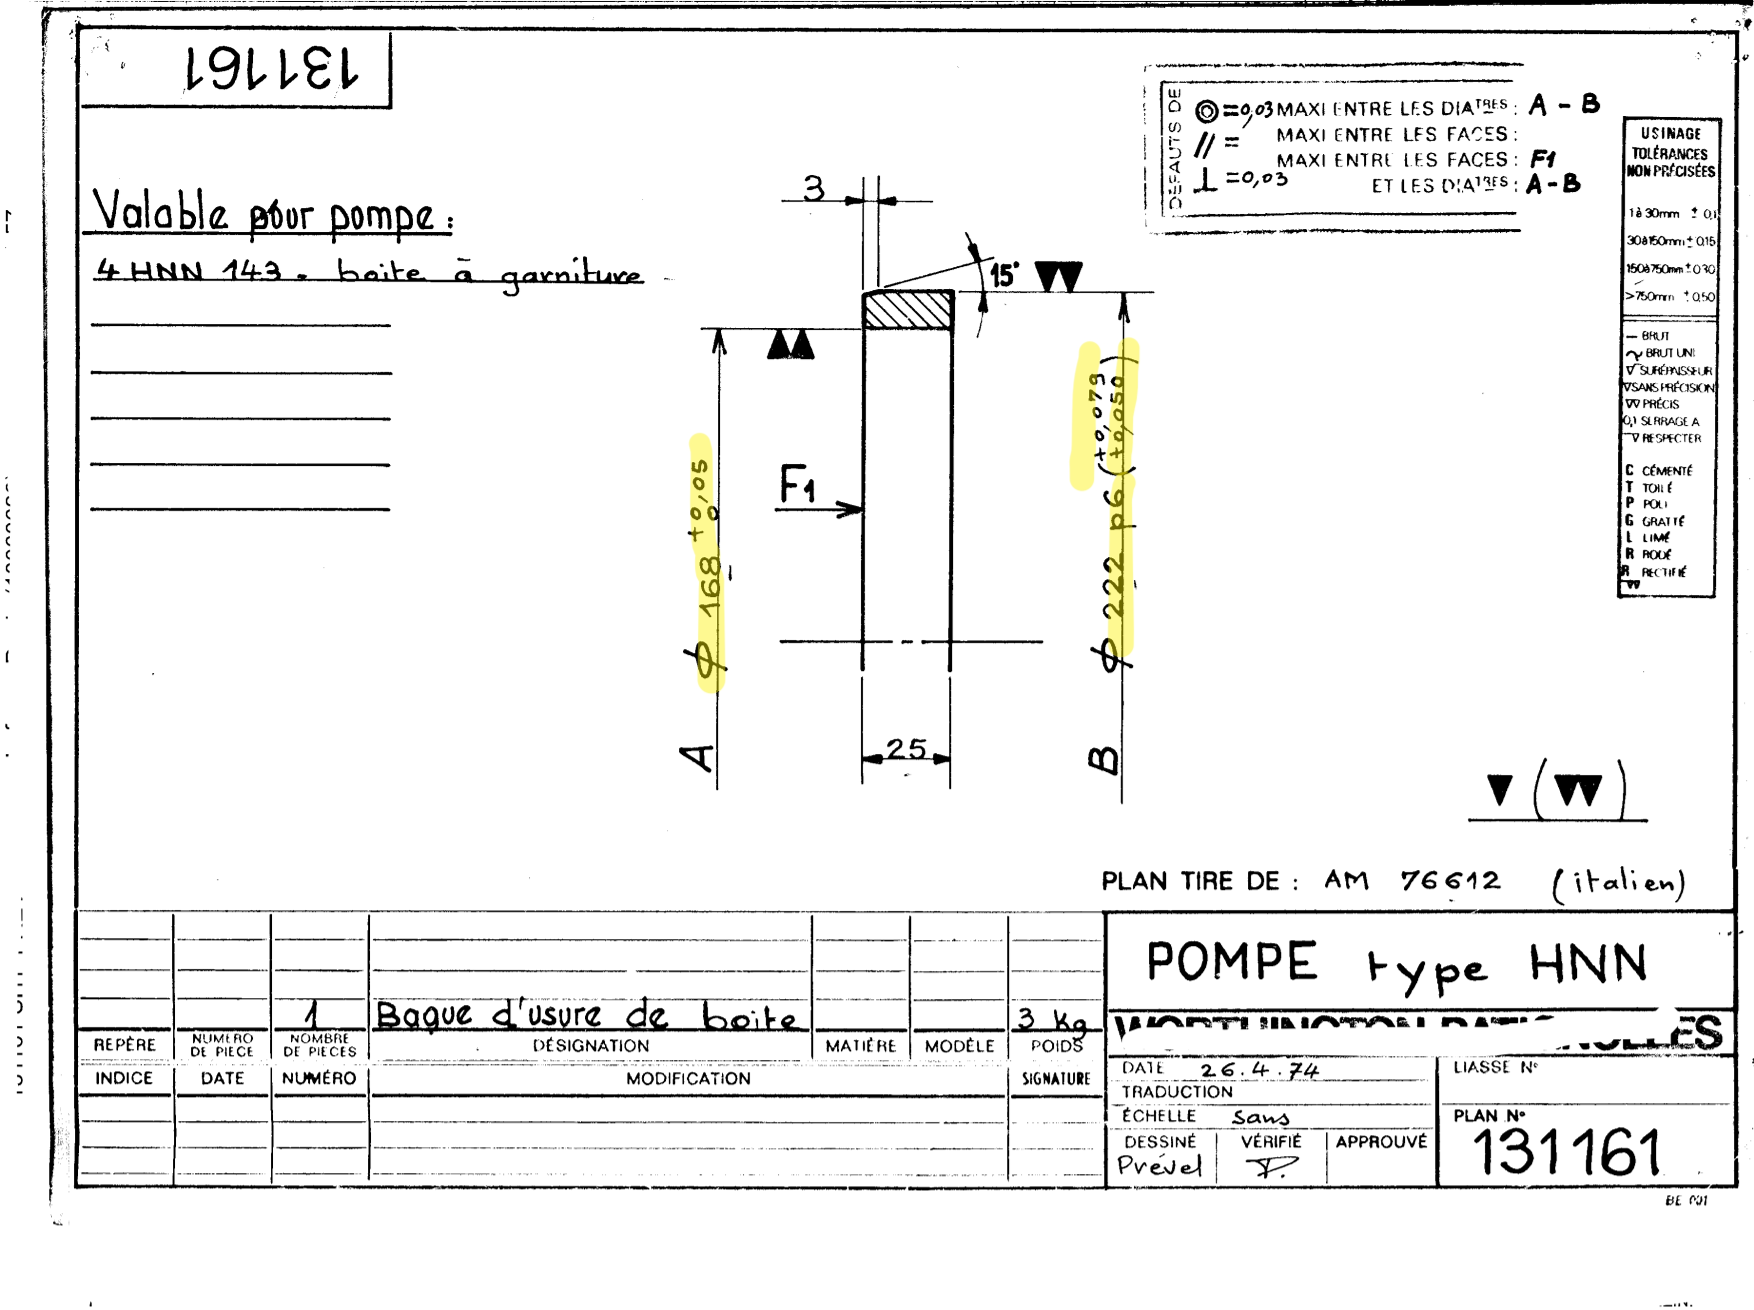 131161
Valable pour pompe :
4 HNN 143 - boite à garniture
DÉFAUTS DE
◎ = 0,03 MAXI ENTRE LES DIATRES : A - B
// = MAXI ENTRE LES FACES :
⊥ = 0,03 MAXI ENTRE LES FACES : F1
ET LES DIATRES : A - B
USINAGE
TOLÉRANCES
NON PRÉCISÉES
1 à 30mm ± 0,1
30 à 150mm ± 0,15
150 à 750mm ± 0,30
>750mm ± 0,50
BRUT
BRUT UNI
SURÉPAISSEUR
SANS PRÉCISION
PRÉCIS
0,1 SERRAGE A
RESPECTER
C CÉMENTÉ
T TOILÉ
P POLI
G GRATTÉ
L LIMÉ
R RODÉ
R RECTIFIÉ
3
15°
F1
A
ϕ 168 +0,05 0
25
B
ϕ 222 p6 (+0,079 +0,050)
PLAN TIRE DE : AM 76612 (italien)
1 Bague d'usure de boite 3 Kg
REPÈRE NUMÉRO DE PIÈCE NOMBRE DE PIÈCES DÉSIGNATION MATIÈRE MODÈLE POIDS
INDICE DATE NUMÉRO MODIFICATION SIGNATURE
POMPE type HNN
DATE 26.4.74
TRADUCTION
ÉCHELLE Sans
DESSINÉ VÉRIFIÉ APPROUVÉ
Prével
LIASSE N°
PLAN N°
131161
BE 001